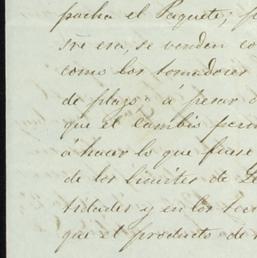 pacha el Paquete; p
sre era, se venden co
como los tomadores
de plazo á pesar d
que el cambio perm
á hacer lo que fuese
de los límites de Le
tidades y en los ter
que el producto de